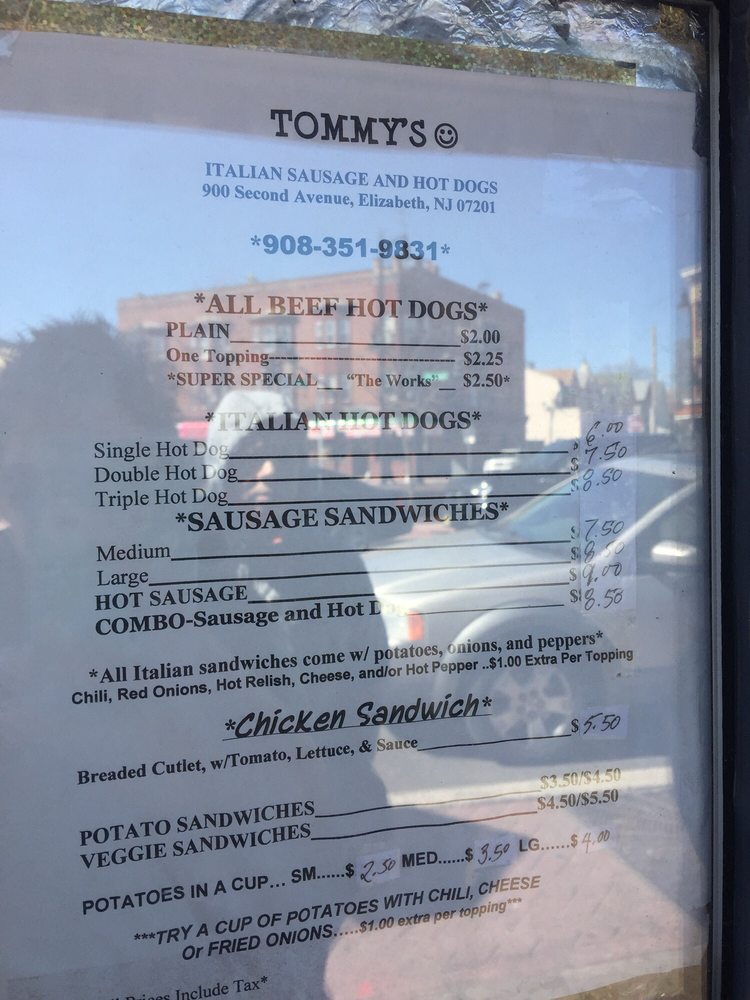 TOMMY'S
ITALIAN SAUSAGE AND HOT DOGS
900 Second Avenue, Elizabeth, NJ 07201
*908-351-9831*
*ALL BEEF HOT DOGS*
PLAIN $2.00
One Topping---------------------------------- $2.25
*SUPER SPECIAL__"The Works"__ $2.50*
*ITALIAN HOT DOGS*
Single Hot Dog $ 6.00
Double Hot Dog $ 7.50
Triple Hot Dog $ 8.50
*SAUSAGE SANDWICHES*
Medium $ 7.50
Large $ 8.50
HOT SAUSAGE $ 9.00
COMBO-Sausage and Hot $ 8.50
*All Italian sandwiches come w/ potatoes, onions, and peppers*
Chili, Red Onions, Hot Relish, Cheese, and/or Hot Pepper ..$1.00 Extra Per Topping
*Chicken Sandwich*
Breaded Cutlet, w/Tomato, Lettuce, & Sauce $ 5.50
POTATO SANDWICHES $3.50/$4.50
VEGGIE SANDWICHES $4.50/$5.50
POTATOES IN A CUP... SM......$ 2.50 MED......$ 3.50 LG......$ 4.00
***TRY A CUP OF POTATOES WITH CHILI, CHEESE
Or FRIED ONIONS.....$1.00 extra per topping***
Prices Include Tax*